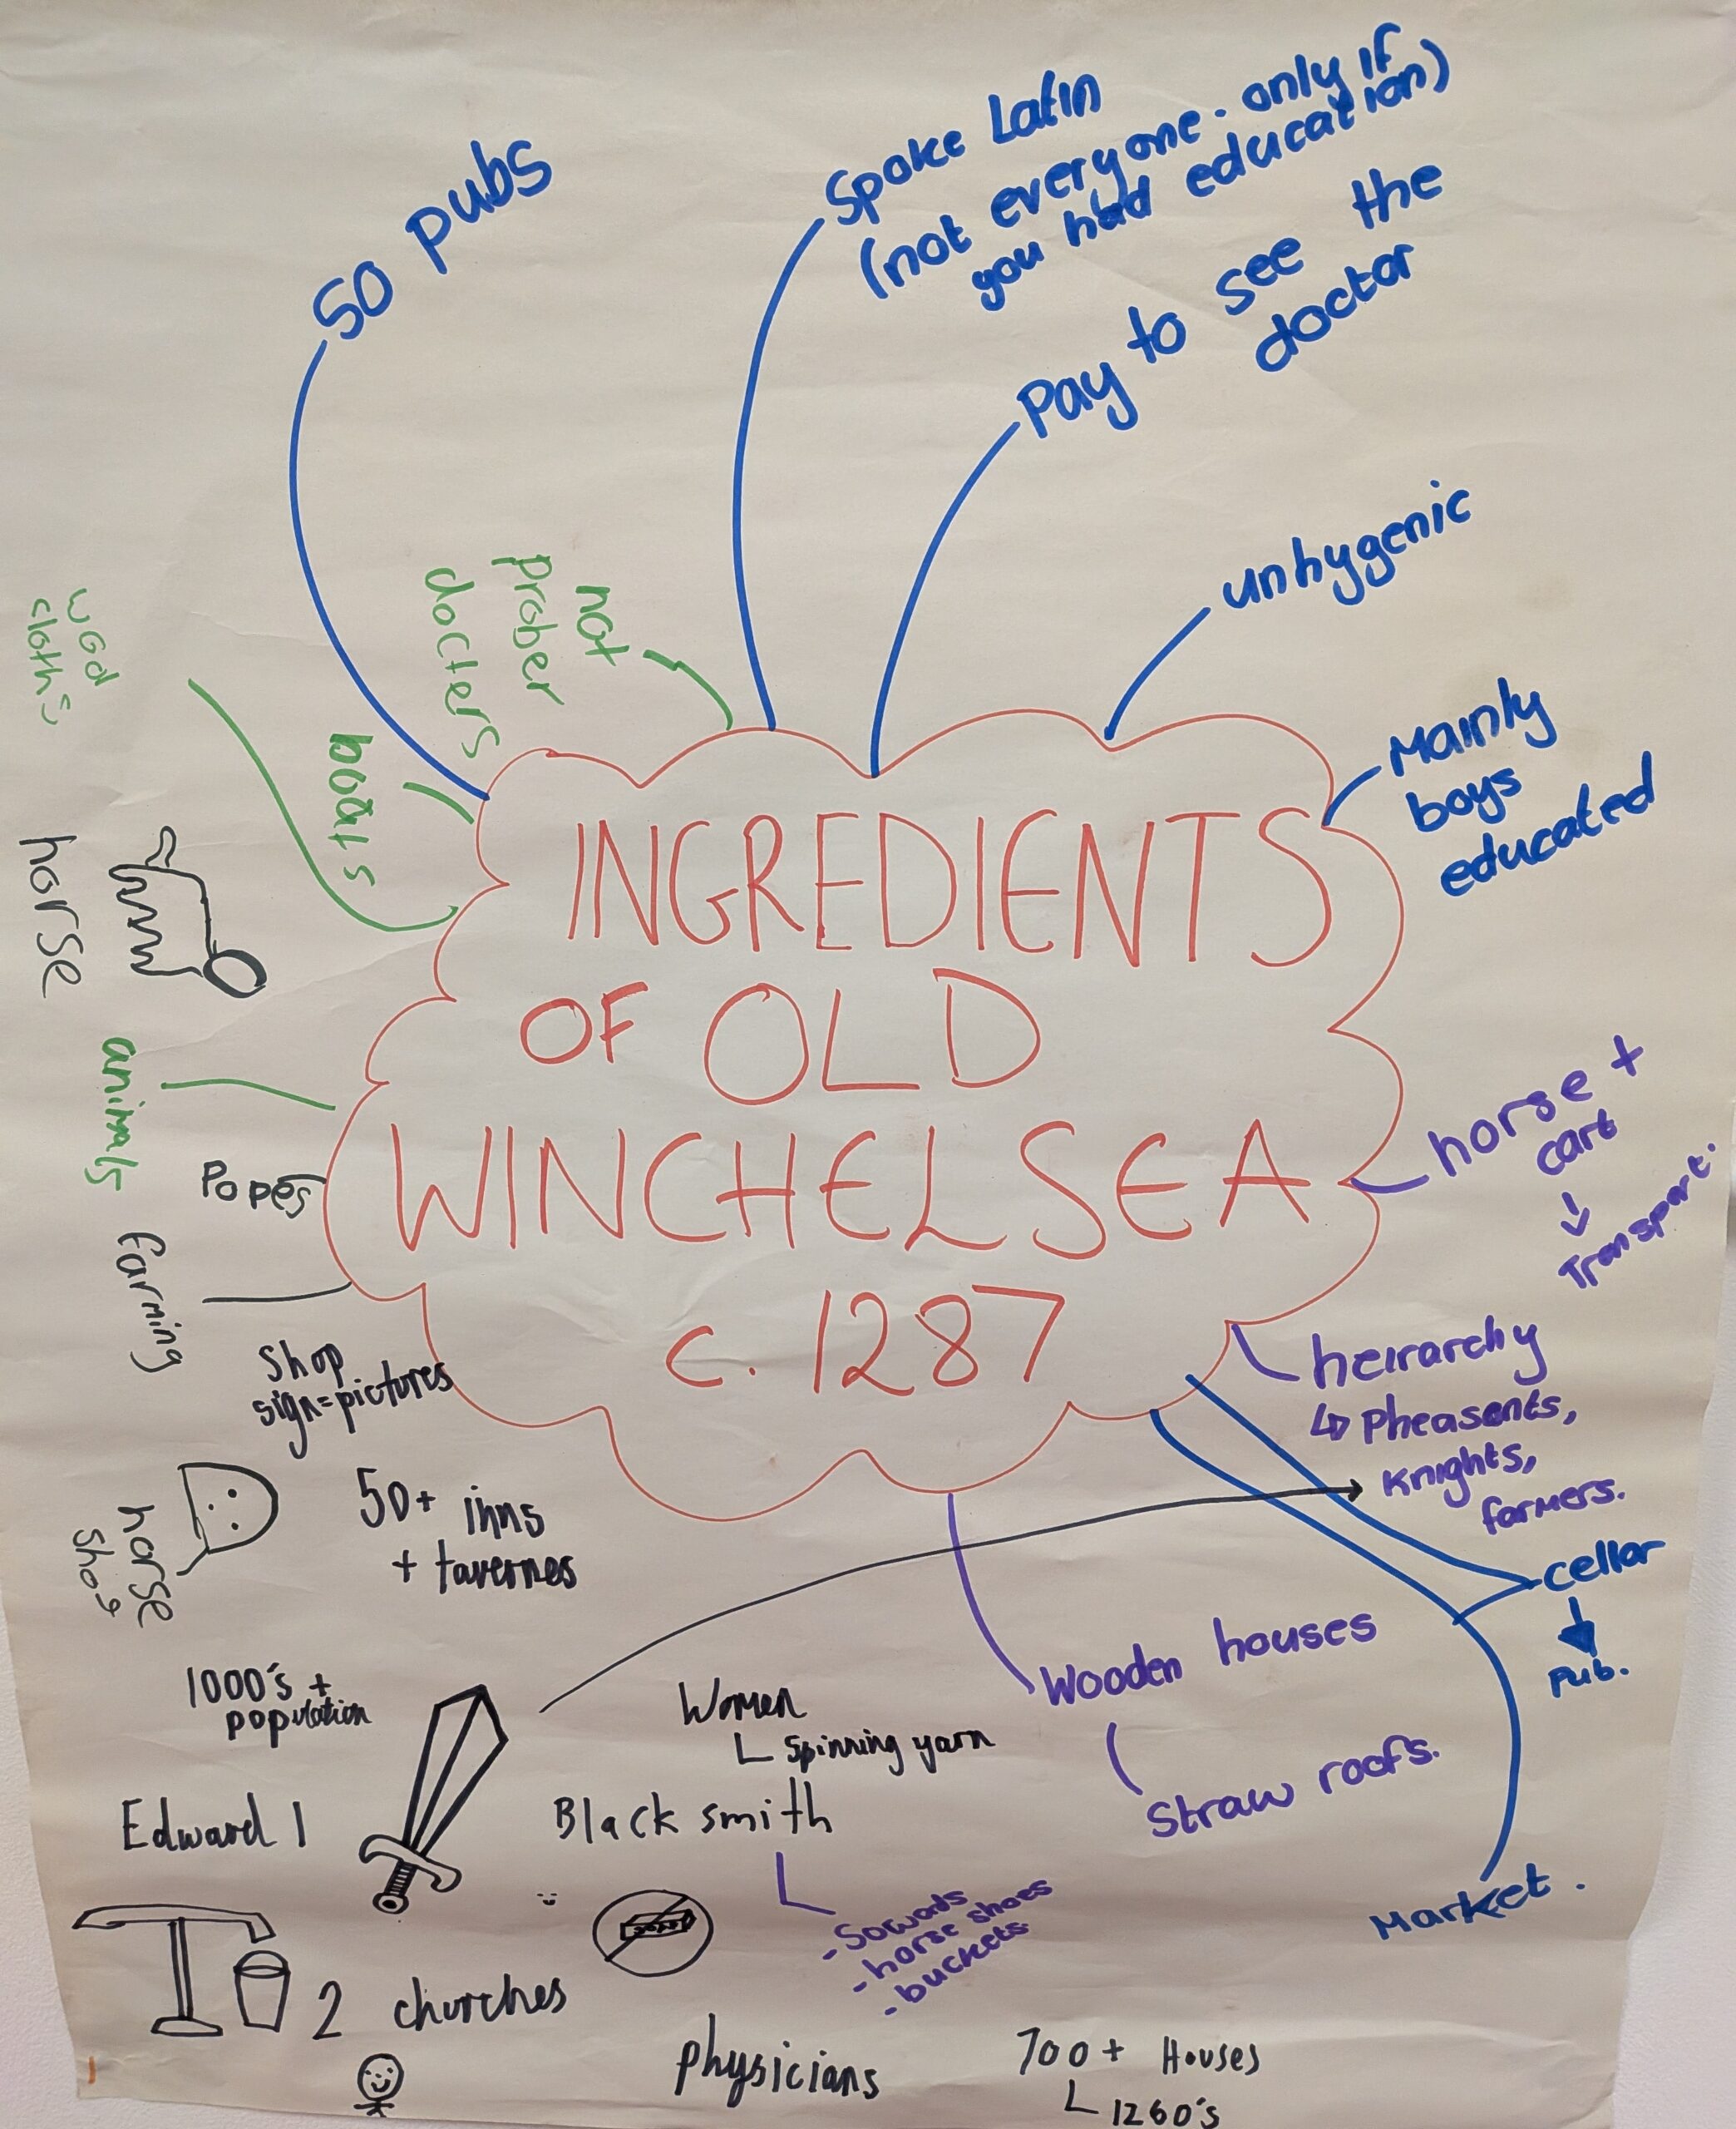 50 pubs
Spoke Latin
(not everyone. only if
you had education)
Pay to see the
doctor
unhygenic
Mainly
boys
educated
not
prober
docters
boats
cloths
horse
animals
Popes
farming
INGREDIENTS
OF OLD
WINCHELSEA
c. 1287
horse +
cart
Transport.
heirarchy
Pheasents,
Knights,
farmers.
cellar
Pub.
Market.
Shop
sign=pictures
50+ inns
+ tavernes
horse
1000's +
population
Women
Spinning yarn
Wooden houses
Straw roofs.
Edward 1
Black smith
- Sowards
- horse shoes
- buckets
2 churches
physicians
700+ Houses
1260's